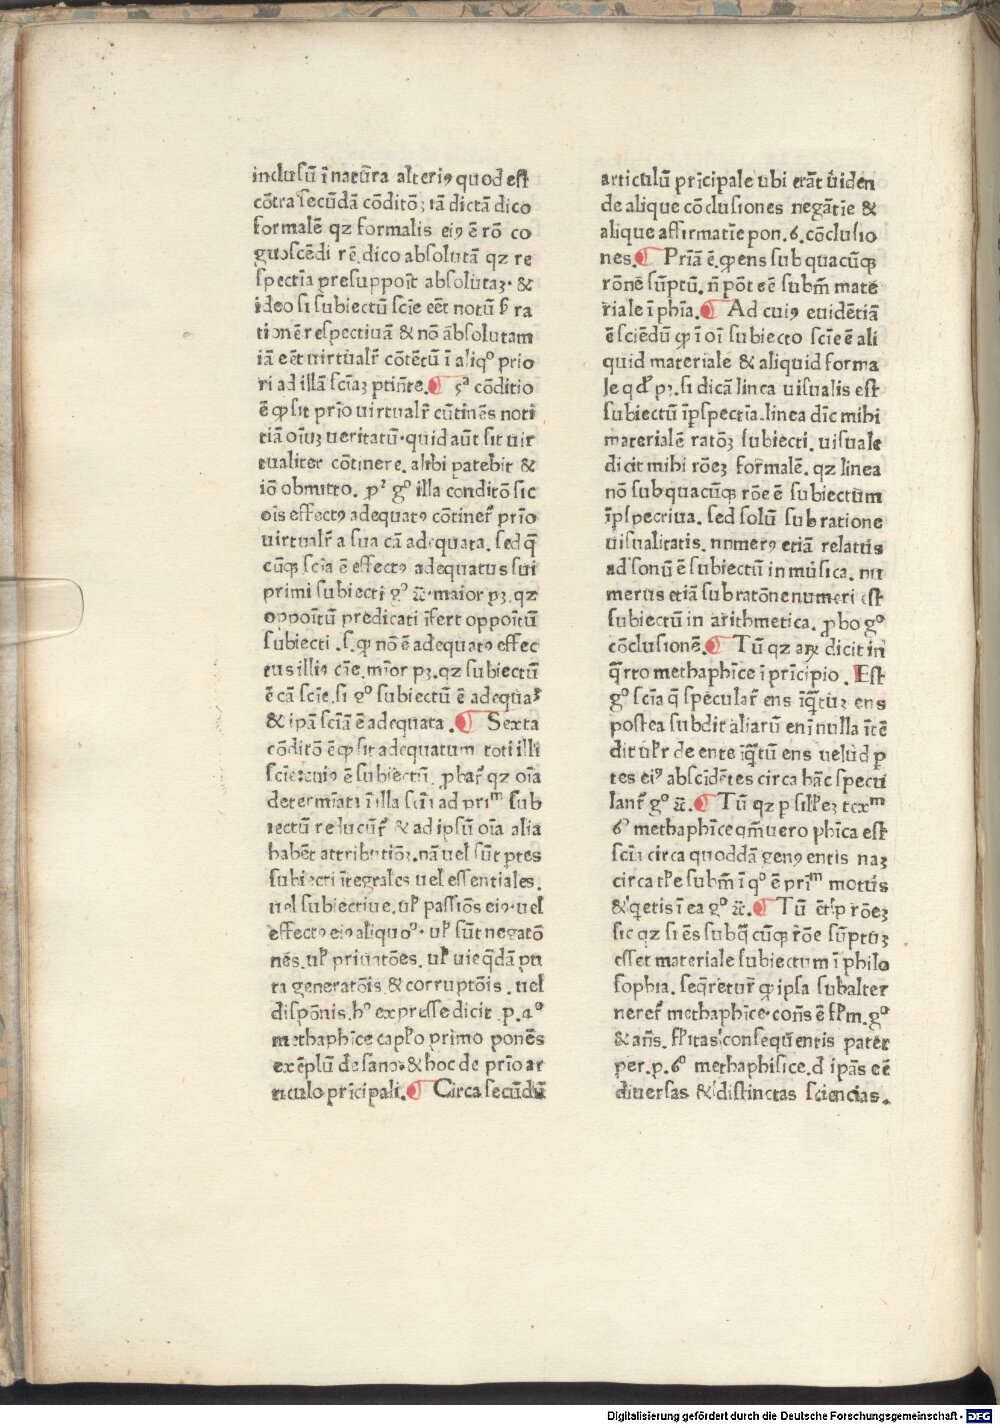 inclusũ ĩ natũra alteriꝰ quod est
cõtra secũdã cõditõꝫ iã dictã dico
formalẽ qꝫ formalis eiꝰ ẽ rõ co
gnoscẽdi rẽ. dico absolutã qꝫ re
spectiã presuppoĩt absolutaꝫ. &
ideo si subiectũ scĩe eẽt notũ ẜ ra
tionẽ respectiuã & nõ ãbsolutam
iã eẽt uirtualr̃ cõtẽtũ ĩ aliqᵒ prio
ri ad illã scĩaꝫ ptiñte. ¶ 5ᵃ cõditio
ẽ ꝙ sit prĩo uirtualr̃ cũtinẽs noti
tiã oĩuꝫ ueritatũ. quid aũt sit uir
tualiter cõtinere. alibi patebit &
iõ obmitto. ꝓᵃ gᵒ illa conditõ sic
oĩs effectꝰ adequatꝰ cõtinet̃ prĩo
uirtualr̃ a sua cã adequata. sed q̃
cũqꝫ scĩa ẽ effectꝰ adequatus sui
primi subiecti gᵒ ⁊c̃. maior pꝫ. qꝫ
oppoĩtũ predicati ĩfert oppoĩtũ
subiecti .s. ꝙ nõ ẽ adequatꝰ effec
tus illiꝰ cãe. mĩor pꝫ. qꝫ subiectũ
ẽ cã scĩe. si gᵒ subiectũ ẽ adequaᵗ
& ipã scĩã ẽ adequata. ¶ Sexta
cõditõ ẽ ꝙ sit adequatum toti illi
scĩe: cuiꝰ ẽ subiectũ. ꝓbat̃ qꝫ oĩa
determĩati ĩ illa scĩa ad priᵐ sub
iectũ reducũt̃ & ad ipsũ oĩa alia
habẽt attributiõꝫ. nã uel sũt ptes
subiecti ĩtegrales uel essentiales.
uel subiectiue. ul̃ passiõs eiꝰ. uel
effectꝰ eiꝰ aliquoᵒ. ul̃ sũt negatõ
nẽs. ul̃ priuatões. ul̃ uie q̃dã pu
ta generatõis & corruptõis. uel
dispõnis. hᵒ expresse dicit .p. 4ᵒ
methaphĩce caplo primo ponẽs
exẽplũ de sano: & hoc de prĩo ar
ticulo prĩcipali. ¶ Circa secũdũ
articulũ prĩcipale ubi erãt uiden
de alique cõclusiones negãtĩe &
alique affirmatĩe pon .6. cõclusio
nes. ¶ Prĩã ẽ. ꝙ ens sub quacũqꝫ
rõne sũptũ. ñ põt eẽ subm̃ mate
riale ĩ phĩa. ¶ Ad cuiꝰ euidẽtiã
ẽ sciẽdũ ꝙ ĩ oĩ subiecto scĩe ẽ ali
quid materiale & aliquid forma
le qđ pꝫ. si dicã linea uisualis est
subiectũ ĩpspectĩa. linea dĩc mihi
materialẽ ratõꝫ subiecti. uisuale
dicit mihi rõeꝫ formalẽ. qꝫ linea
nõ sub quacũqꝫ rõe ẽ subiectum
ĩpspectiua. sed solũ sub ratione
uisualitatis. numerꝰ etiã relatus
ad sonũ ẽ subiectũ in musica. nu
merus etiã sub ratõne numeri est
subiectũ in arithmetica. ꝓbo gᵒ
cõclusionẽ. ¶ Tũ qꝫ arꝫ dicit in
q̃rto methaphĩce ĩ prĩcipio. Est
gᵒ scĩa q̃ specular̃ ens ĩq̃tũꝫ ens
postea subdit aliarũ enĩ nulla ĩtẽ
dit ul̃r de ente ĩq̃tũ ens uelud p
tes eiꝰ abscĩdẽtes circa hãc specu
lant̃ gᵒ ⁊c̃. ¶ Tũ qꝫ p sil̃eꝫ texᵐ
6ᵒ methaphĩce qm̃ uero phĩca est
scĩa circa quoddã genꝰ entis naꝫ
circa tl̃e subm̃ ĩ qᵒ ẽ priᵐ motus
& q̃etis ĩ ea gᵒ ⁊c̃. ¶ Tũ et̃ p rõeꝫ
sic qꝫ si ẽs sub q̃cũqꝫ rõe sũptuꝫ
esset materiale subiectum ĩ philo
sophia. seq̃retur̃ ꝙ ipsa subalter
neret̃ methaphĩce. cõñs ẽ fl̃m. gᵒ
& añs. fl̃itas consequẽntis patet
per .p. 6ᵒ methaphisice. đ ipãs eẽ
diuersas & distinctas sciencias.
Digitalisierung gefördert durch die Deutsche Forschungsgemeinschaft - DFG